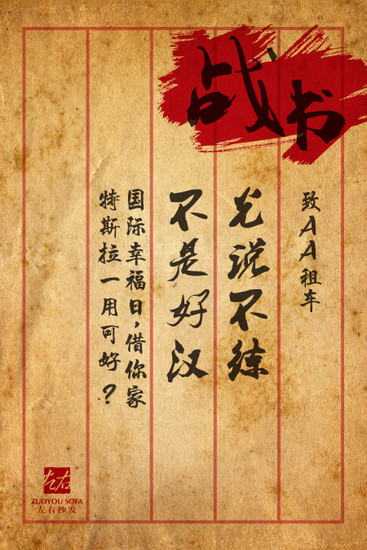 战书
致AA租车
光说不练
不是好汉
国际幸福日，借你家
特斯拉一用可好？
左右
ZUOYOU SOFA
左右沙发